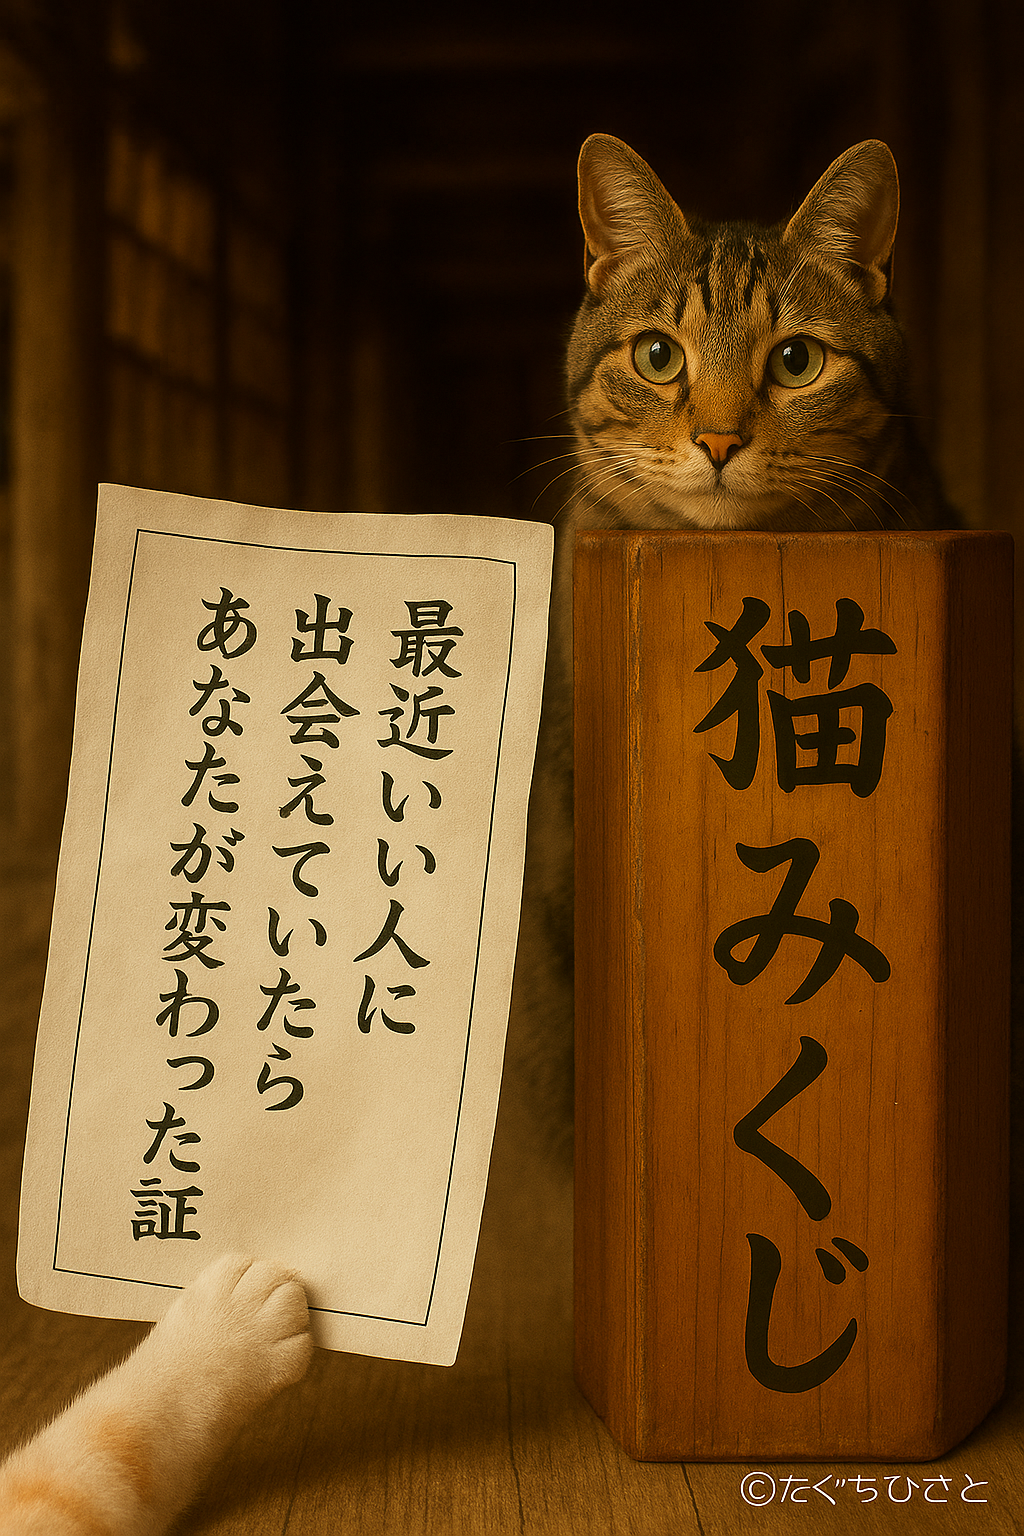 最近いい人に
出会えていたら
あなたが変わった証
猫みくじ
©たぐちひさと